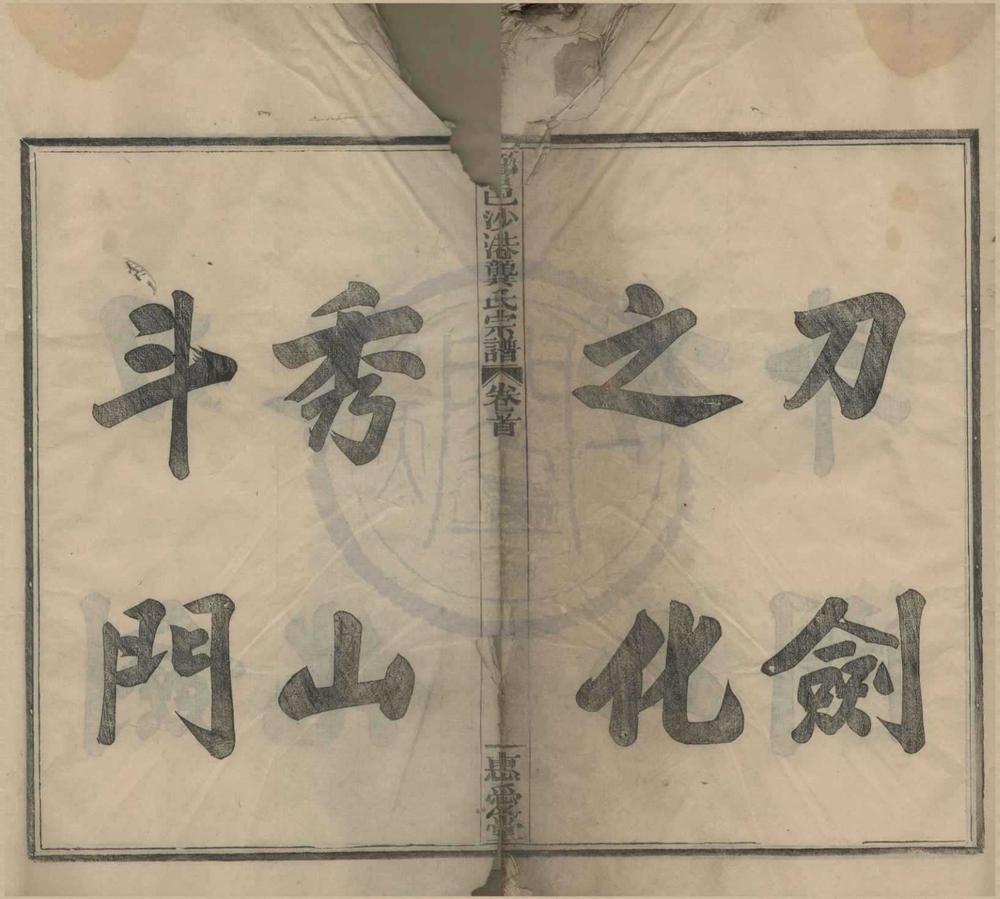 刀劍
之化
邑沙港龔氏宗譜 卷首 惠愛堂
秀山
斗門